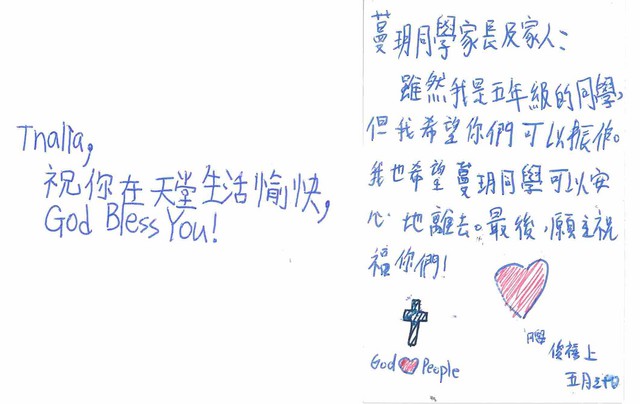 Tnalia,
祝你在天堂生活愉快,
God Bless You!
蔓玥同學家長及家人：
雖然我是五年級的同學,
但我希望你們可以振作。
我也希望蔓玥同學可以安
心地離去。最後,願主祝
福你們！
God People
同學
俊禧上
五月